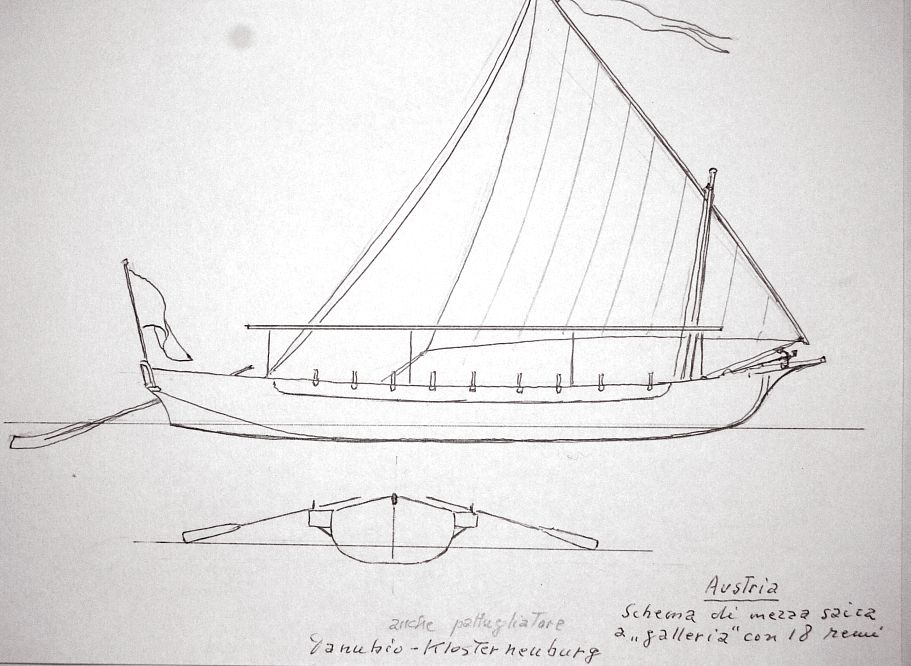 Austria
Schema di mezza saica
a „galleria“ con 18 remi
anche pattugliatore
Danubio - Klosterneuburg